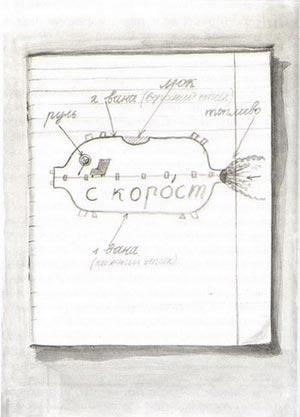 люк
2 вана (верхний этаж)
руль
топливо
с корост
1 вана
(нижний этаж)